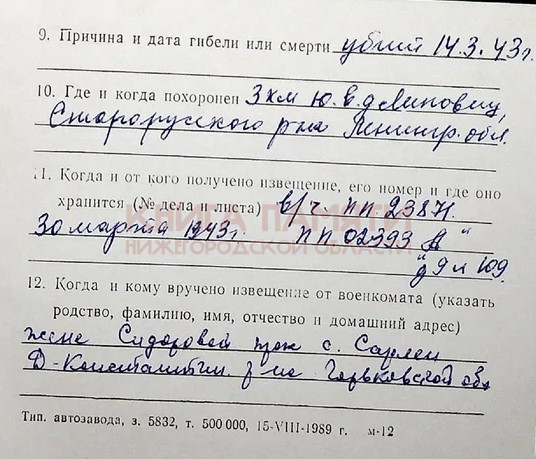 9. Причина и дата гибели или смерти убит 14.3.43г.
10. Где и когда похоронен 3 км ю.в. д. Липовец,
Старорусского р-на Ленингр. обл.
11. Когда и от кого получено извещение, его номер и где оно
хранится (№ дела и листа) в/ч пп 23871.
30 марта 1943г. пп 02393 "А"
д 9 л 109
КНИГА ПАМЯТИ
НИЖЕГОРОДСКОЙ ОБЛАСТИ
12. Когда и кому вручено извещение от военкомата (указать
родство, фамилию, имя, отчество и домашний адрес)
жене Сидоровой прож с. Сарлей
Д-Константин р-на Горьковской обл
Тип. автозавода, з. 5832, т. 500 000, 15-VIII-1989 г. м-12